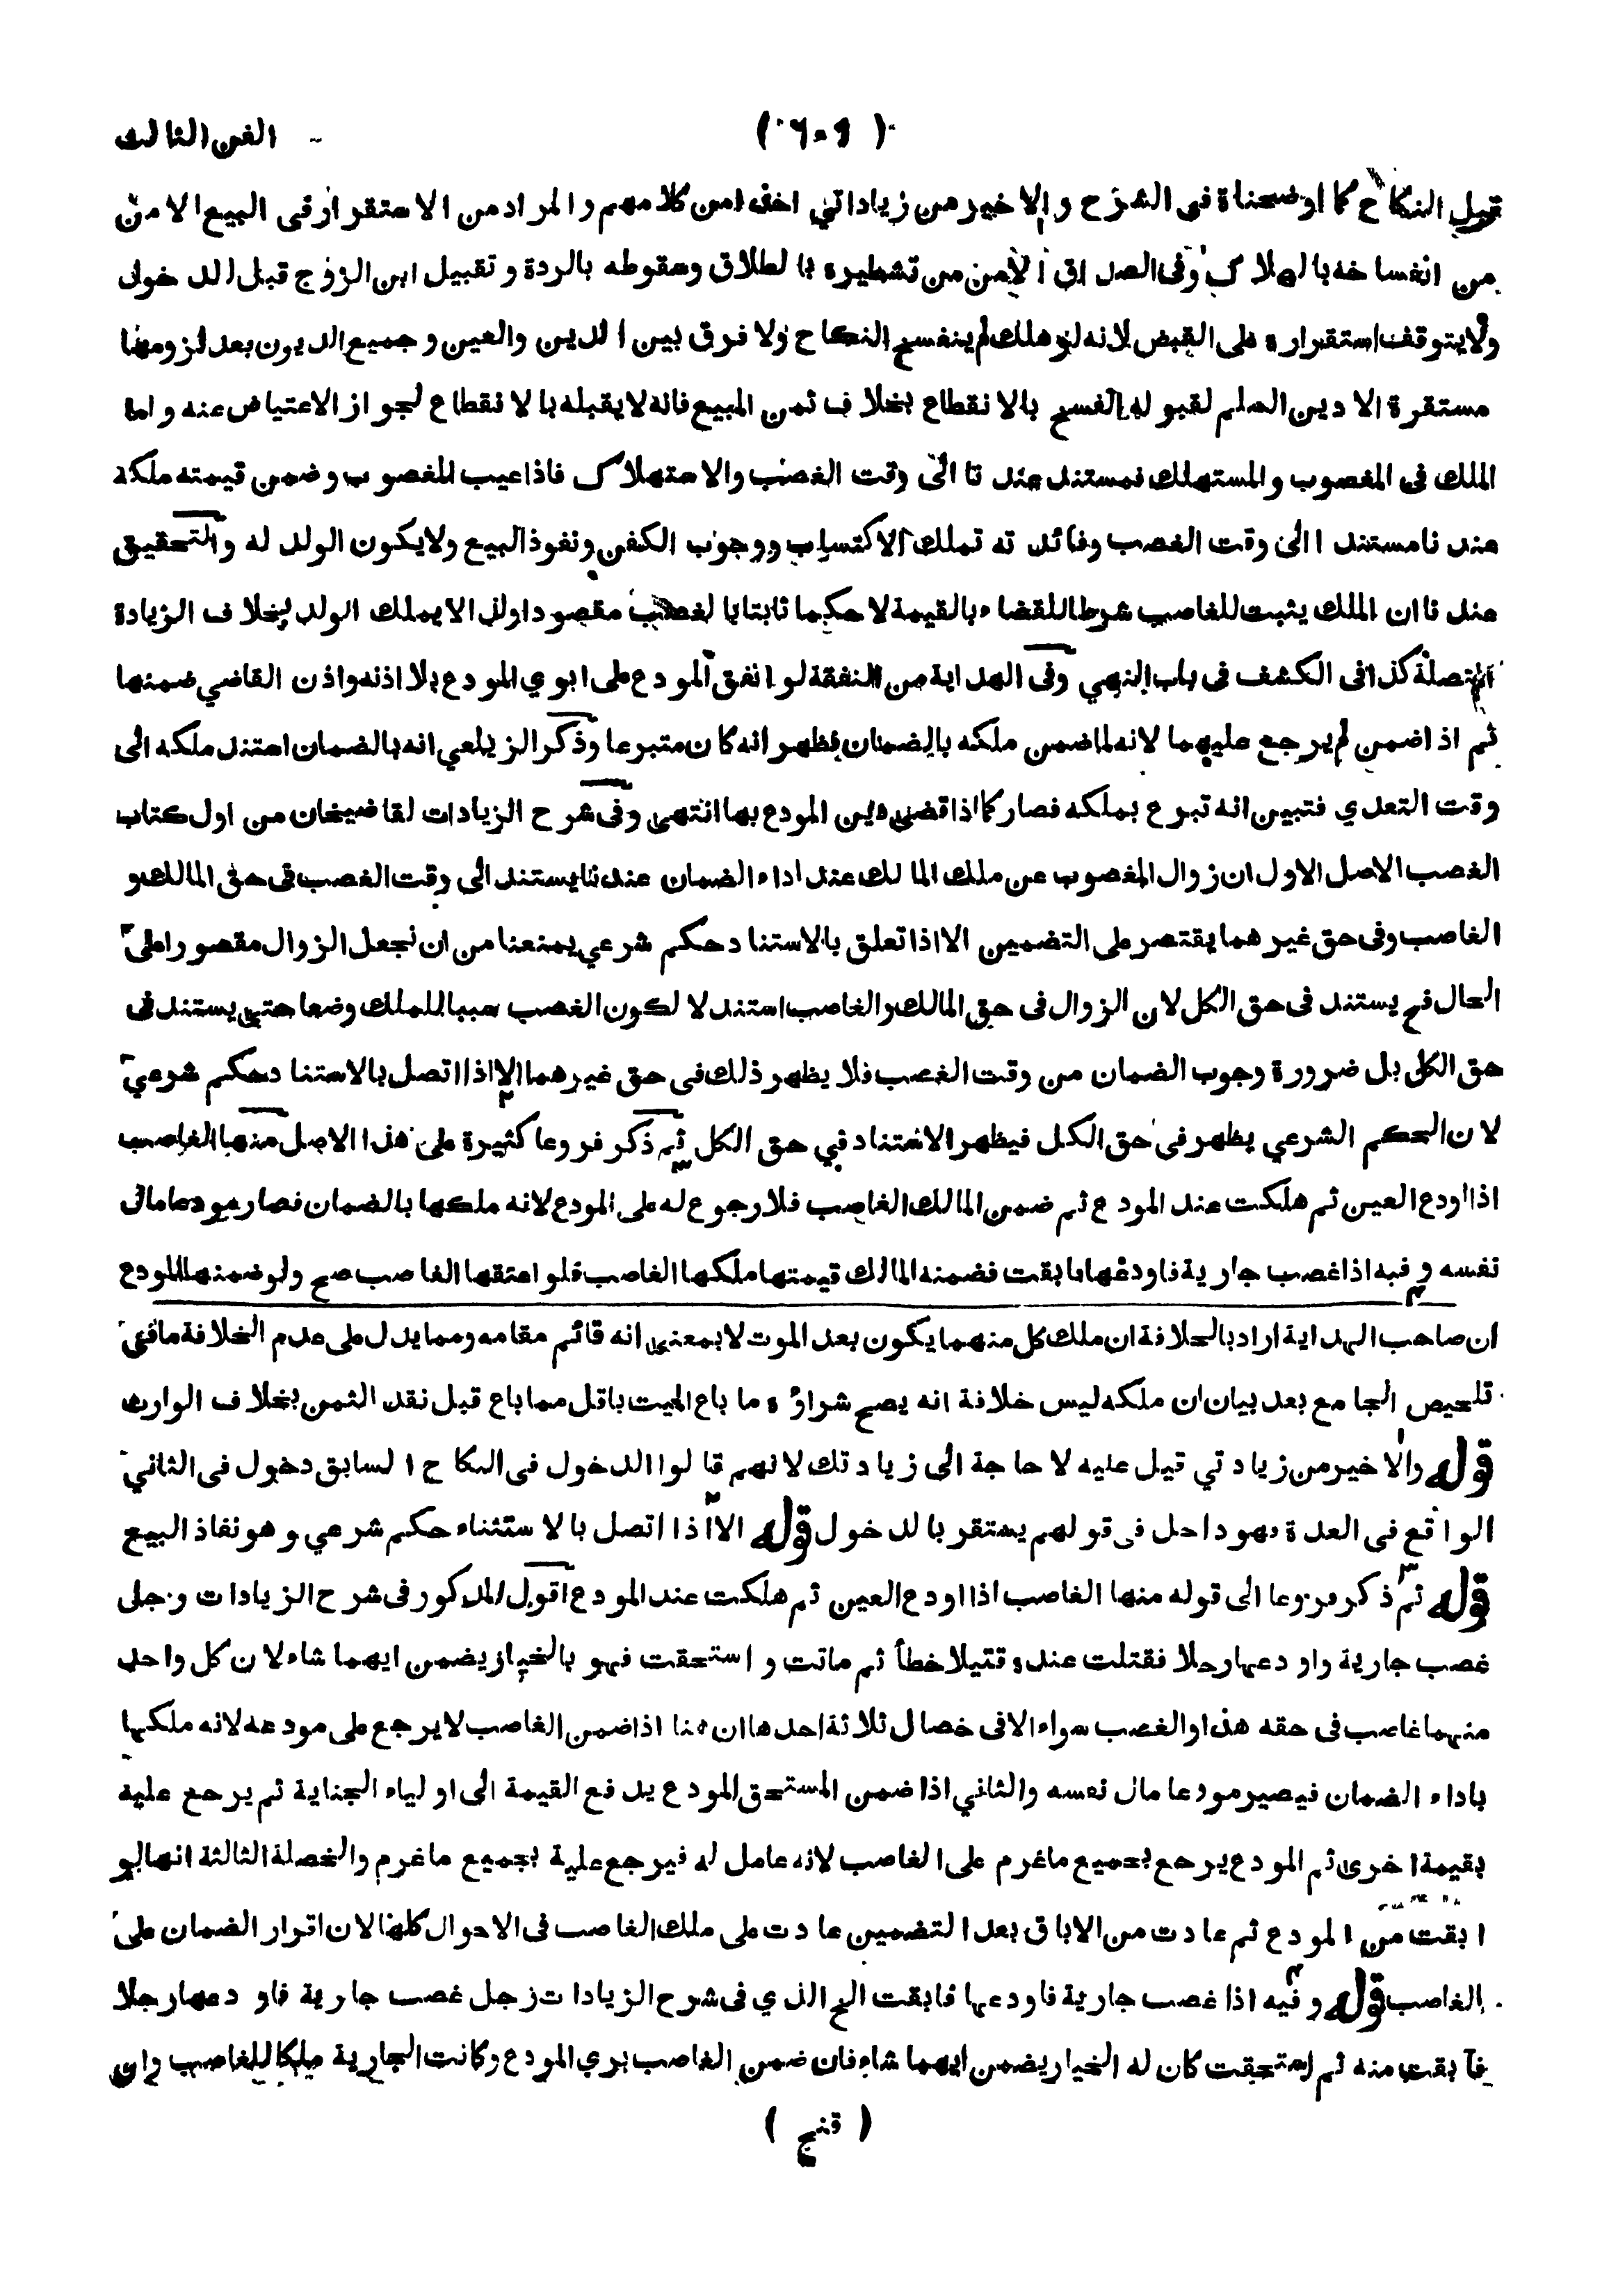 الفن الثالث
( ٦٠٩ )
قبل النكاح كما اوضحناه في الشرح والاخير من زياداتي اخذا من كلامهم والمراد من الاستقرار في البيع الامن
من انفساخه بالهلاك وفي الصداق الامن من تشطيره بالطلاق وسقوطه بالردة وتقبيل ابن الزوج قبل الدخول
ولا يتوقف استقراره على القبض لانه لو هلك لم ينفسخ النكاح ولا فرق بين الدين والعين وجميع الديون بعد لزومها
مستقرة الا دين السلم لقبوله الفسخ بالانقطاع بخلاف ثمن المبيع فانه لا يقبله بالانقطاع لجواز الاعتياض عنه واما
الملك في المغصوب والمستهلك فمستند عندنا الى وقت الغصب والاستهلاك فاذا عيب المغصوب وضمن قيمته ملكه
عندنا مستندا الى وقت الغصب وفائدته تملك الاكتساب ووجوب الكفن ونفوذ البيع ولا يكون الولد له والتحقيق
عندنا ان الملك يثبت للغاصب شرطا للقضاء بالقيمة لا حكما ثابتا بالغصب مقصودا ولذا لا يملك الولد بخلاف الزيادة
المتصلة كذا في الكشف في باب النهي وفي الهداية من النفقة لو انفق المودع على ابوي المودع بلا اذنه واذن القاضي ضمنها
ثم اذا ضمن لم يرجع عليهما لانه لما ضمن ملكه بالضمان فظهر انه كان متبرعا وذكر الزيلعي انه بالضمان استند ملكه الى
وقت التعدي فتبين انه تبرع بملكه فصار كما اذا قضى دين المودع بها انتهى وفي شرح الزيادات لقاضيخان من اول كتاب
الغصب الاصل الاول ان زوال المغصوب عن ملك المالك عند اداء الضمان عندنا يستند الى وقت الغصب في حق المالك و
الغاصب وفي حق غيرهما يقتصر على التضمين الا اذا تعلق بالاستناد حكم شرعي يمنعنا من ان نجعل الزوال مقصورا على
الحال فح يستند في حق الكل لان الزوال في حق المالك والغاصب استند لا لكون الغصب سببا للملك وضعا حتى يستند في
حق الكل بل ضرورة وجوب الضمان من وقت الغصب فلا يظهر ذلك في حق غيرهما الا اذا اتصل بالاستناد حكم شرعي
لان الحكم الشرعي يظهر في حق الكل فيظهر الاستناد في حق الكل ثم ذكر فروعا كثيرة على هذا الاصل منها الغاصب
اذا اودع العين ثم هلكت عند المودع ثم ضمن المالك الغاصب فلا رجوع له على المودع لانه ملكها بالضمان فصار مودعا مال
نفسه وفيه اذا غصب جارية فاودعها فابقت فضمنه المالك قيمتها ملكها الغاصب فلو اعتقها الغاصب صح ولو ضمنها المودع
ان صاحب الهداية اراد بالخلافة ان ملك كل منهما يكون بعد الموت لا بمعنى انه قائم مقامه ومما يدل على عدم الخلافة ما في
تلخيص الجامع بعد بيان ان ملكه ليس خلافة انه يصح شراؤه ما باع الميت باقل مما باع قبل نقد الثمن بخلاف الوارث
قوله والاخير من زيادتي قيل عليه لا حاجة الى زيادتك لانهم قالوا الدخول في النكاح السابق دخول في الثاني
الواقع في العدة فهو داخل في قولهم يستقر بالدخول قوله الا اذا اتصل بالاستثناء حكم شرعي وهو نفاذ البيع
قوله ثم ذكر فروعا الى قوله منها الغاصب اذا اودع العين ثم هلكت عند المودع اقول المذكور في شرح الزيادات رجل
غصب جارية واودعها رجلا فقتلت عنده قتيلا خطأ ثم ماتت واستحقت فهو بالخيار يضمن ايهما شاء لان كل واحد
منهما غاصب في حقه هذا والغصب سواء الا في خصال ثلاثة احدها ان هنا اذا ضمن الغاصب لا يرجع على مودعه لانه ملكها
باداء الضمان فيصير مودعا مال نفسه والثاني اذا ضمن المستحق المودع يدفع القيمة الى اولياء الجناية ثم يرجع عليه
بقيمة اخرى ثم المودع يرجع بجميع ما غرم على الغاصب لانه عامل له فيرجع عليه بجميع ما غرم والخصلة الثالثة انها لو
ابقت من المودع ثم عادت من الاباق بعد التضمين عادت على ملك الغاصب في الاحوال كلها لان اقرار الضمان على
الغاصب قوله وفيه اذا غصب جارية فاودعها فابقت الخ الذي في شرح الزيادات رجل غصب جارية فاودعها رجلا
فابقت منه ثم استحقت كان له الخيار يضمن ايهما شاء فان ضمن الغاصب بري المودع وكانت الجارية ملكا للغاصب وان
( قنج )